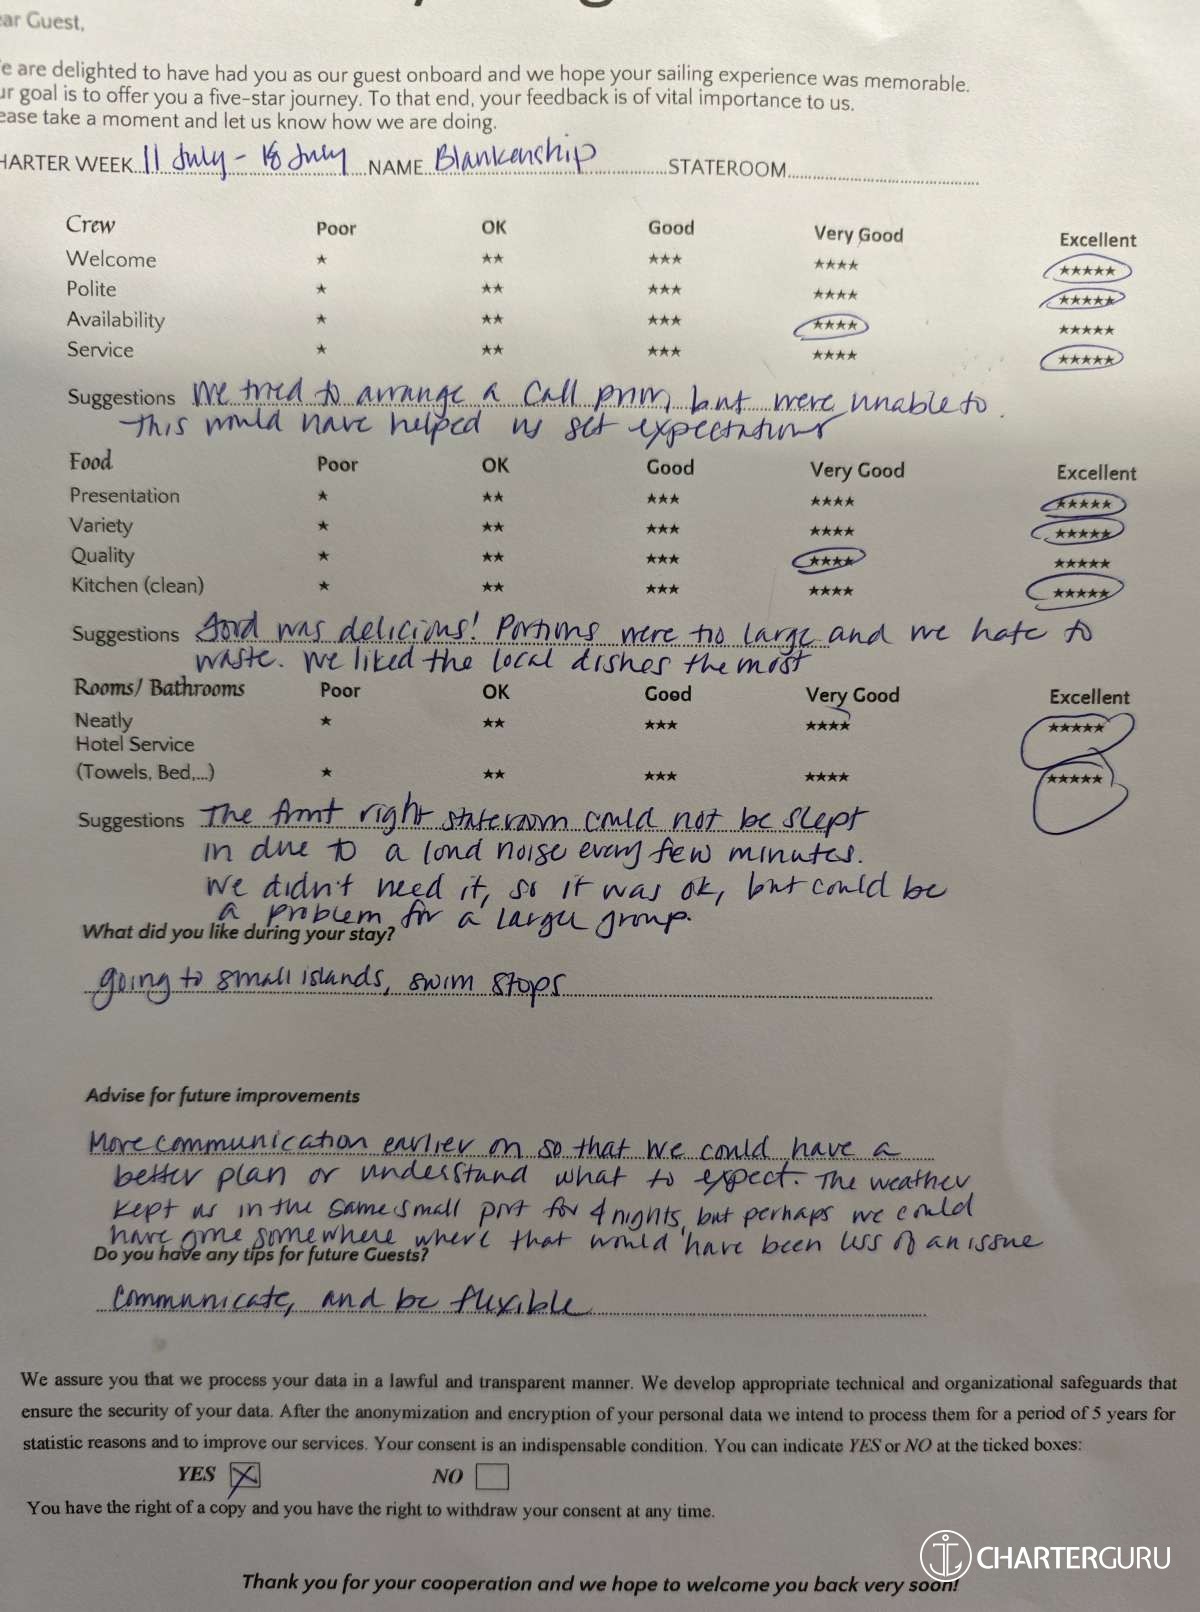 ear Guest,
e are delighted to have had you as our guest onboard and we hope your sailing experience was memorable.
ur goal is to offer you a five-star journey. To that end, your feedback is of vital importance to us.
ease take a moment and let us know how we are doing.
HARTER WEEK 11 July - 18 July NAME Blankenship STATEROOM
Crew Poor OK Good Very Good Excellent
Welcome ★ ★★ ★★★ ★★★★ ★★★★★
Polite ★ ★★ ★★★ ★★★★ ★★★★★
Availability ★ ★★ ★★★ ★★★★ ★★★★★
Service ★ ★★ ★★★ ★★★★ ★★★★★
Suggestions We tried to arrange a call prior, but were unable to.
This would have helped us set expectations
Food Poor OK Good Very Good Excellent
Presentation ★ ★★ ★★★ ★★★★ ★★★★★
Variety ★ ★★ ★★★ ★★★★ ★★★★★
Quality ★ ★★ ★★★ ★★★★ ★★★★★
Kitchen (clean) ★ ★★ ★★★ ★★★★ ★★★★★
Suggestions food was delicious! Portions were too large and we hate to
waste. We liked the local dishes the most
Rooms/ Bathrooms Poor OK Good Very Good Excellent
Neatly ★ ★★ ★★★ ★★★★ ★★★★★
Hotel Service
(Towels, Bed,...) ★ ★★ ★★★ ★★★★ ★★★★★
Suggestions The front right stateroom could not be slept
in due to a loud noise every few minutes.
We didn't need it, so it was ok, but could be
a problem for a larger group.
What did you like during your stay?
going to small islands, swim stops
Advise for future improvements
More communication earlier on so that we could have a
better plan or understand what to expect. The weather
kept us in the same small port for 4 nights, but perhaps we could
have gone somewhere where that would have been less of an issue
Do you have any tips for future Guests?
Communicate, and be flexible
We assure you that we process your data in a lawful and transparent manner. We develop appropriate technical and organizational safeguards that
ensure the security of your data. After the anonymization and encryption of your personal data we intend to process them for a period of 5 years for
statistic reasons and to improve our services. Your consent is an indispensable condition. You can indicate YES or NO at the ticked boxes:
YES X NO
You have the right of a copy and you have the right to withdraw your consent at any time.
CHARTERGURU
Thank you for your cooperation and we hope to welcome you back very soon!